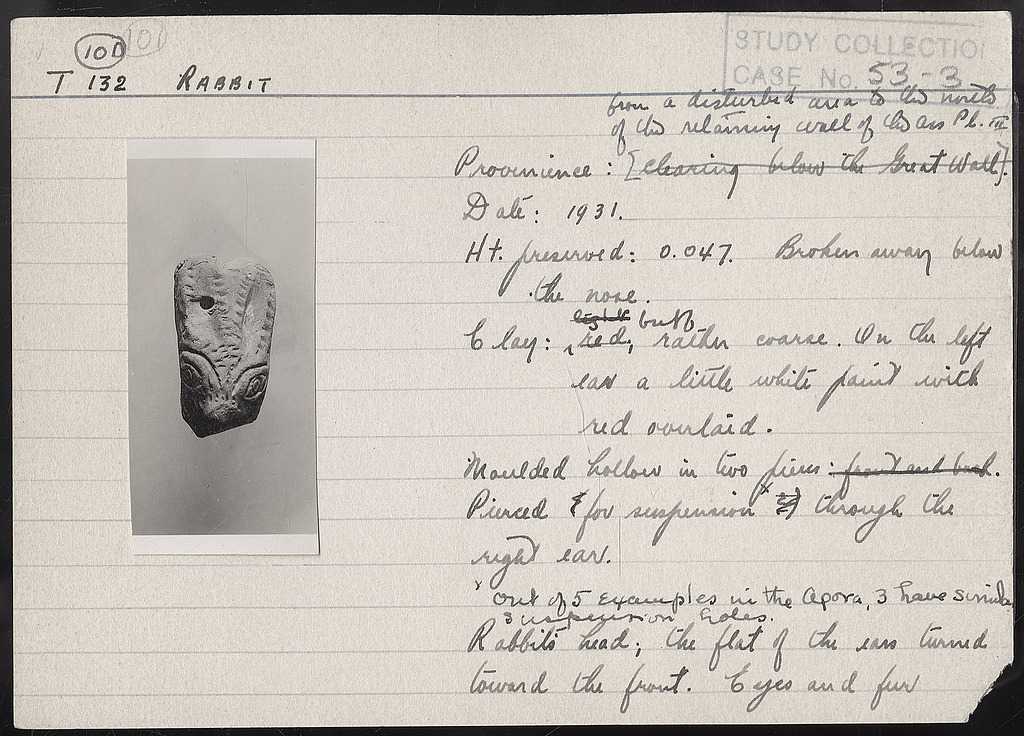 10D 10D
STUDY COLLECTIO
CASE No. 53-3
T 132 RABBIT
from a disturbed area to the north
of the retaining wall of the Ass Pl. III
Provinience: [clearing below the Great Wall].
Date: 1931.
Ht. preserved: 0.047. Broken away below
the nose.
light buff
Clay: red, rather coarse. On the left
ear a little white paint with
red overlaid.
Moulded hollow in two pieces: front and back.
Pierced for suspension x through the
right ear.
x out of 5 examples in the Agora, 3 have simila
suspension holes.
Rabbit's head; the flat of the ears turned
toward the front. Eyes and fur